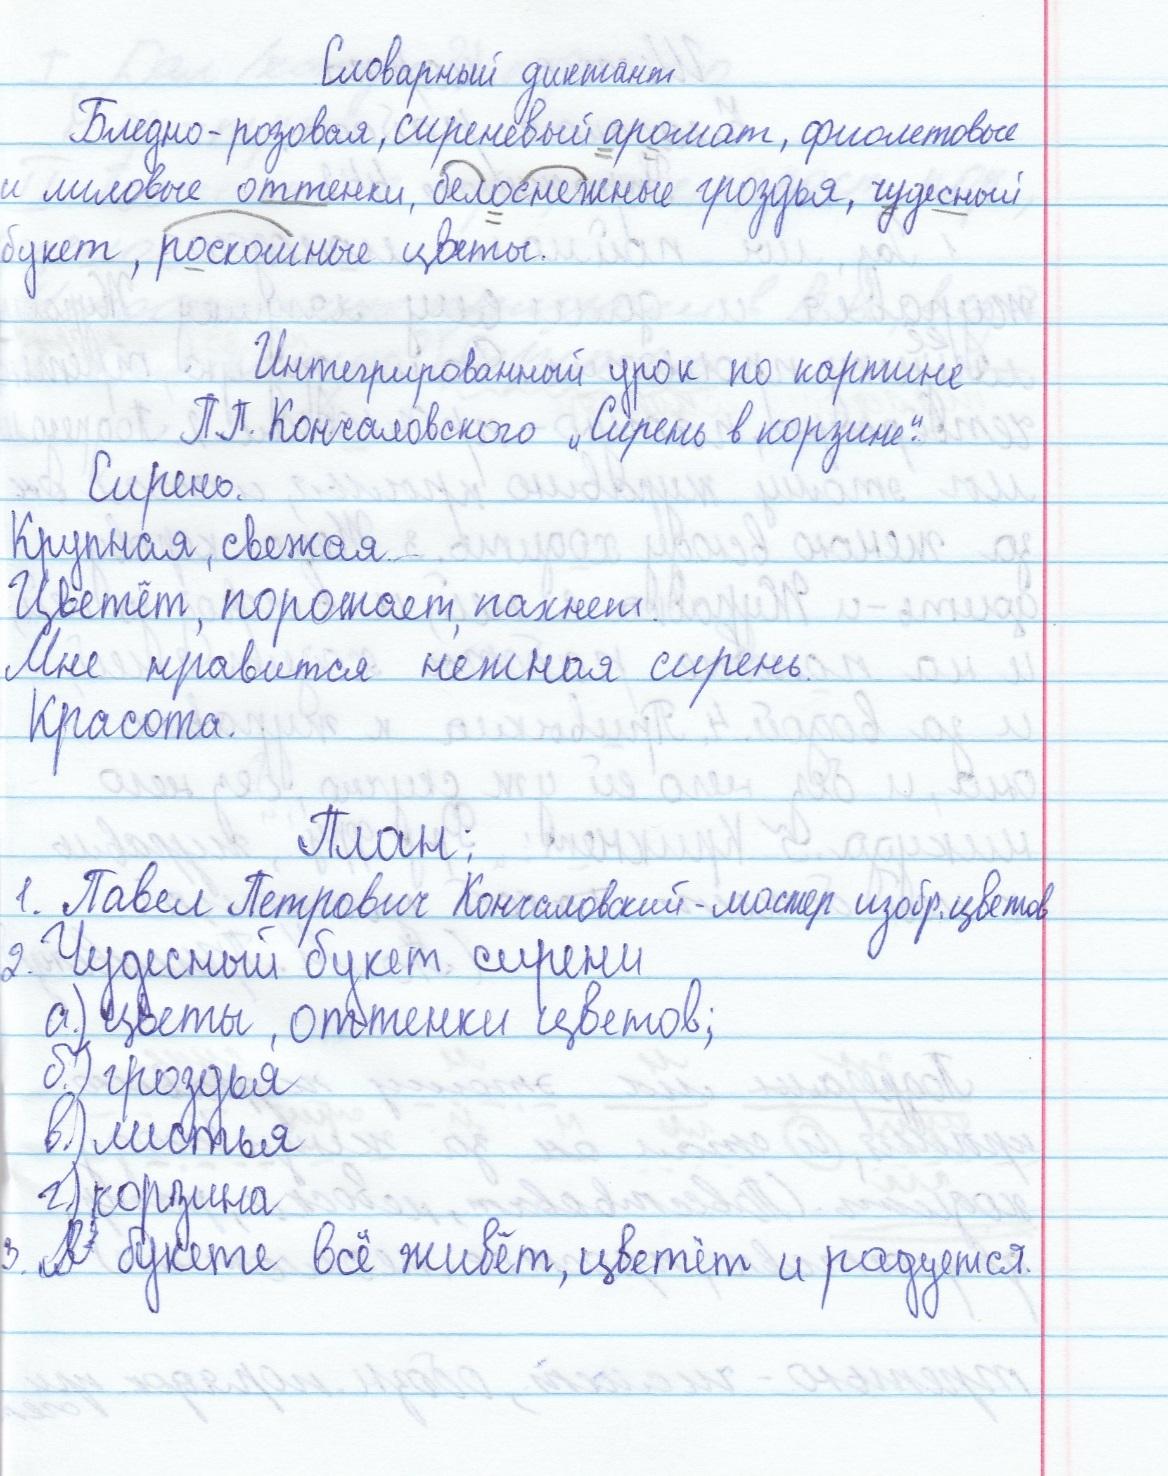 Словарный диктант
Бледно-розовая, сиреневый аромат, фиолетовые
и лиловые оттенки, белоснежные гроздья, чудесный
букет, роскошные цветы.
Интегрированный урок по картине
П.П. Кончаловского „Сирень в корзине".
Сирень.
Крупная, свежая.
Цветёт, порожает, пахнет.
Мне нравится нежная сирень.
Красота.
План:
1. Павел Петрович Кончаловский-мастер изобр. цветов
2. Чудесный букет сирени
а.) цветы, оттенки цветов;
б.) гроздья
в.) листья
г.) корзина
3. В букете всё живёт, цветёт и радуется.